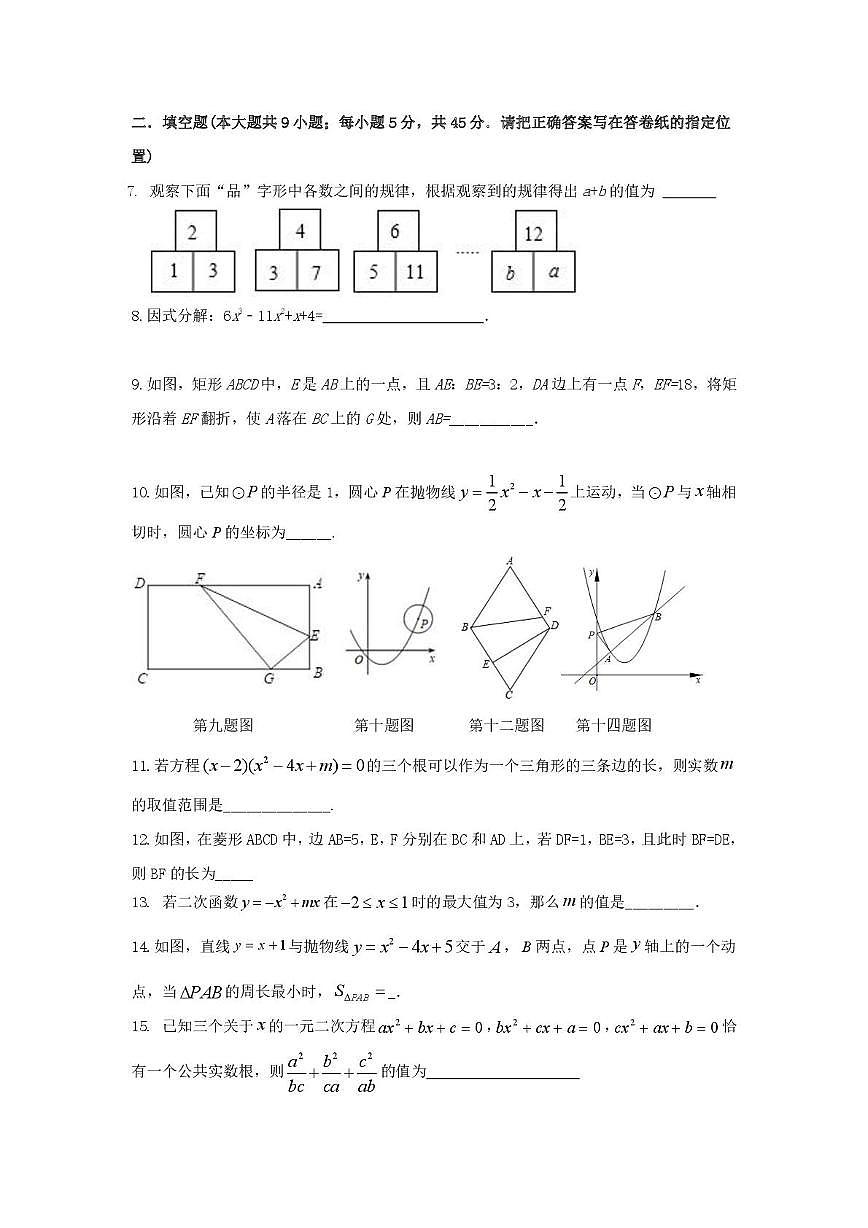 二. 填空题(本大题共9小题; 每小题5分, 共45分. 请把正确答案写在答卷纸的指定位
置)
7. 观察下面“品”字形中各数之间的规律, 根据观察到的规律得出 a+b 的值为 ______
2 4 6 12
1 3 3 7 5 11 ····· b a
8.因式分解: 6x³﹣11x²+x+4=____________________.
9.如图, 矩形ABCD中, E是AB上的一点, 且AE: BE=3: 2, DA边上有一点F, EF=18, 将矩
形沿着EF翻折, 使A落在BC上的G处, 则AB=___________.
10.如图, 已知⊙P的半径是1, 圆心P在抛物线 y=1/2x²-x-1/2 上运动, 当⊙P与x轴相
切时, 圆心P的坐标为______.
D F A E B G C
y P O x
A F B D E C
y B P A O x
第九题图 第十题图 第十二题图 第十四题图
11.若方程(x-2)(x²-4x+m)=0的三个根可以作为一个三角形的三条边的长, 则实数m
的取值范围是______________.
12.如图, 在菱形ABCD中, 边AB=5, E, F分别在BC和AD上, 若DF=1, BE=3, 且此时BF=DE,
则BF的长为_____
13. 若二次函数y=-x²+mx在-2≤x≤1时的最大值为3, 那么m的值是_________.
14.如图, 直线y=x+1与抛物线y=x²-4x+5交于A, B两点, 点P是y轴上的一个动
点, 当△PAB的周长最小时, S△PAB=_.
15. 已知三个关于x的一元二次方程ax²+bx+c=0,bx²+cx+a=0,cx²+ax+b=0恰
有一个公共实数根, 则a²/bc+b²/ca+c²/ab的值为____________________